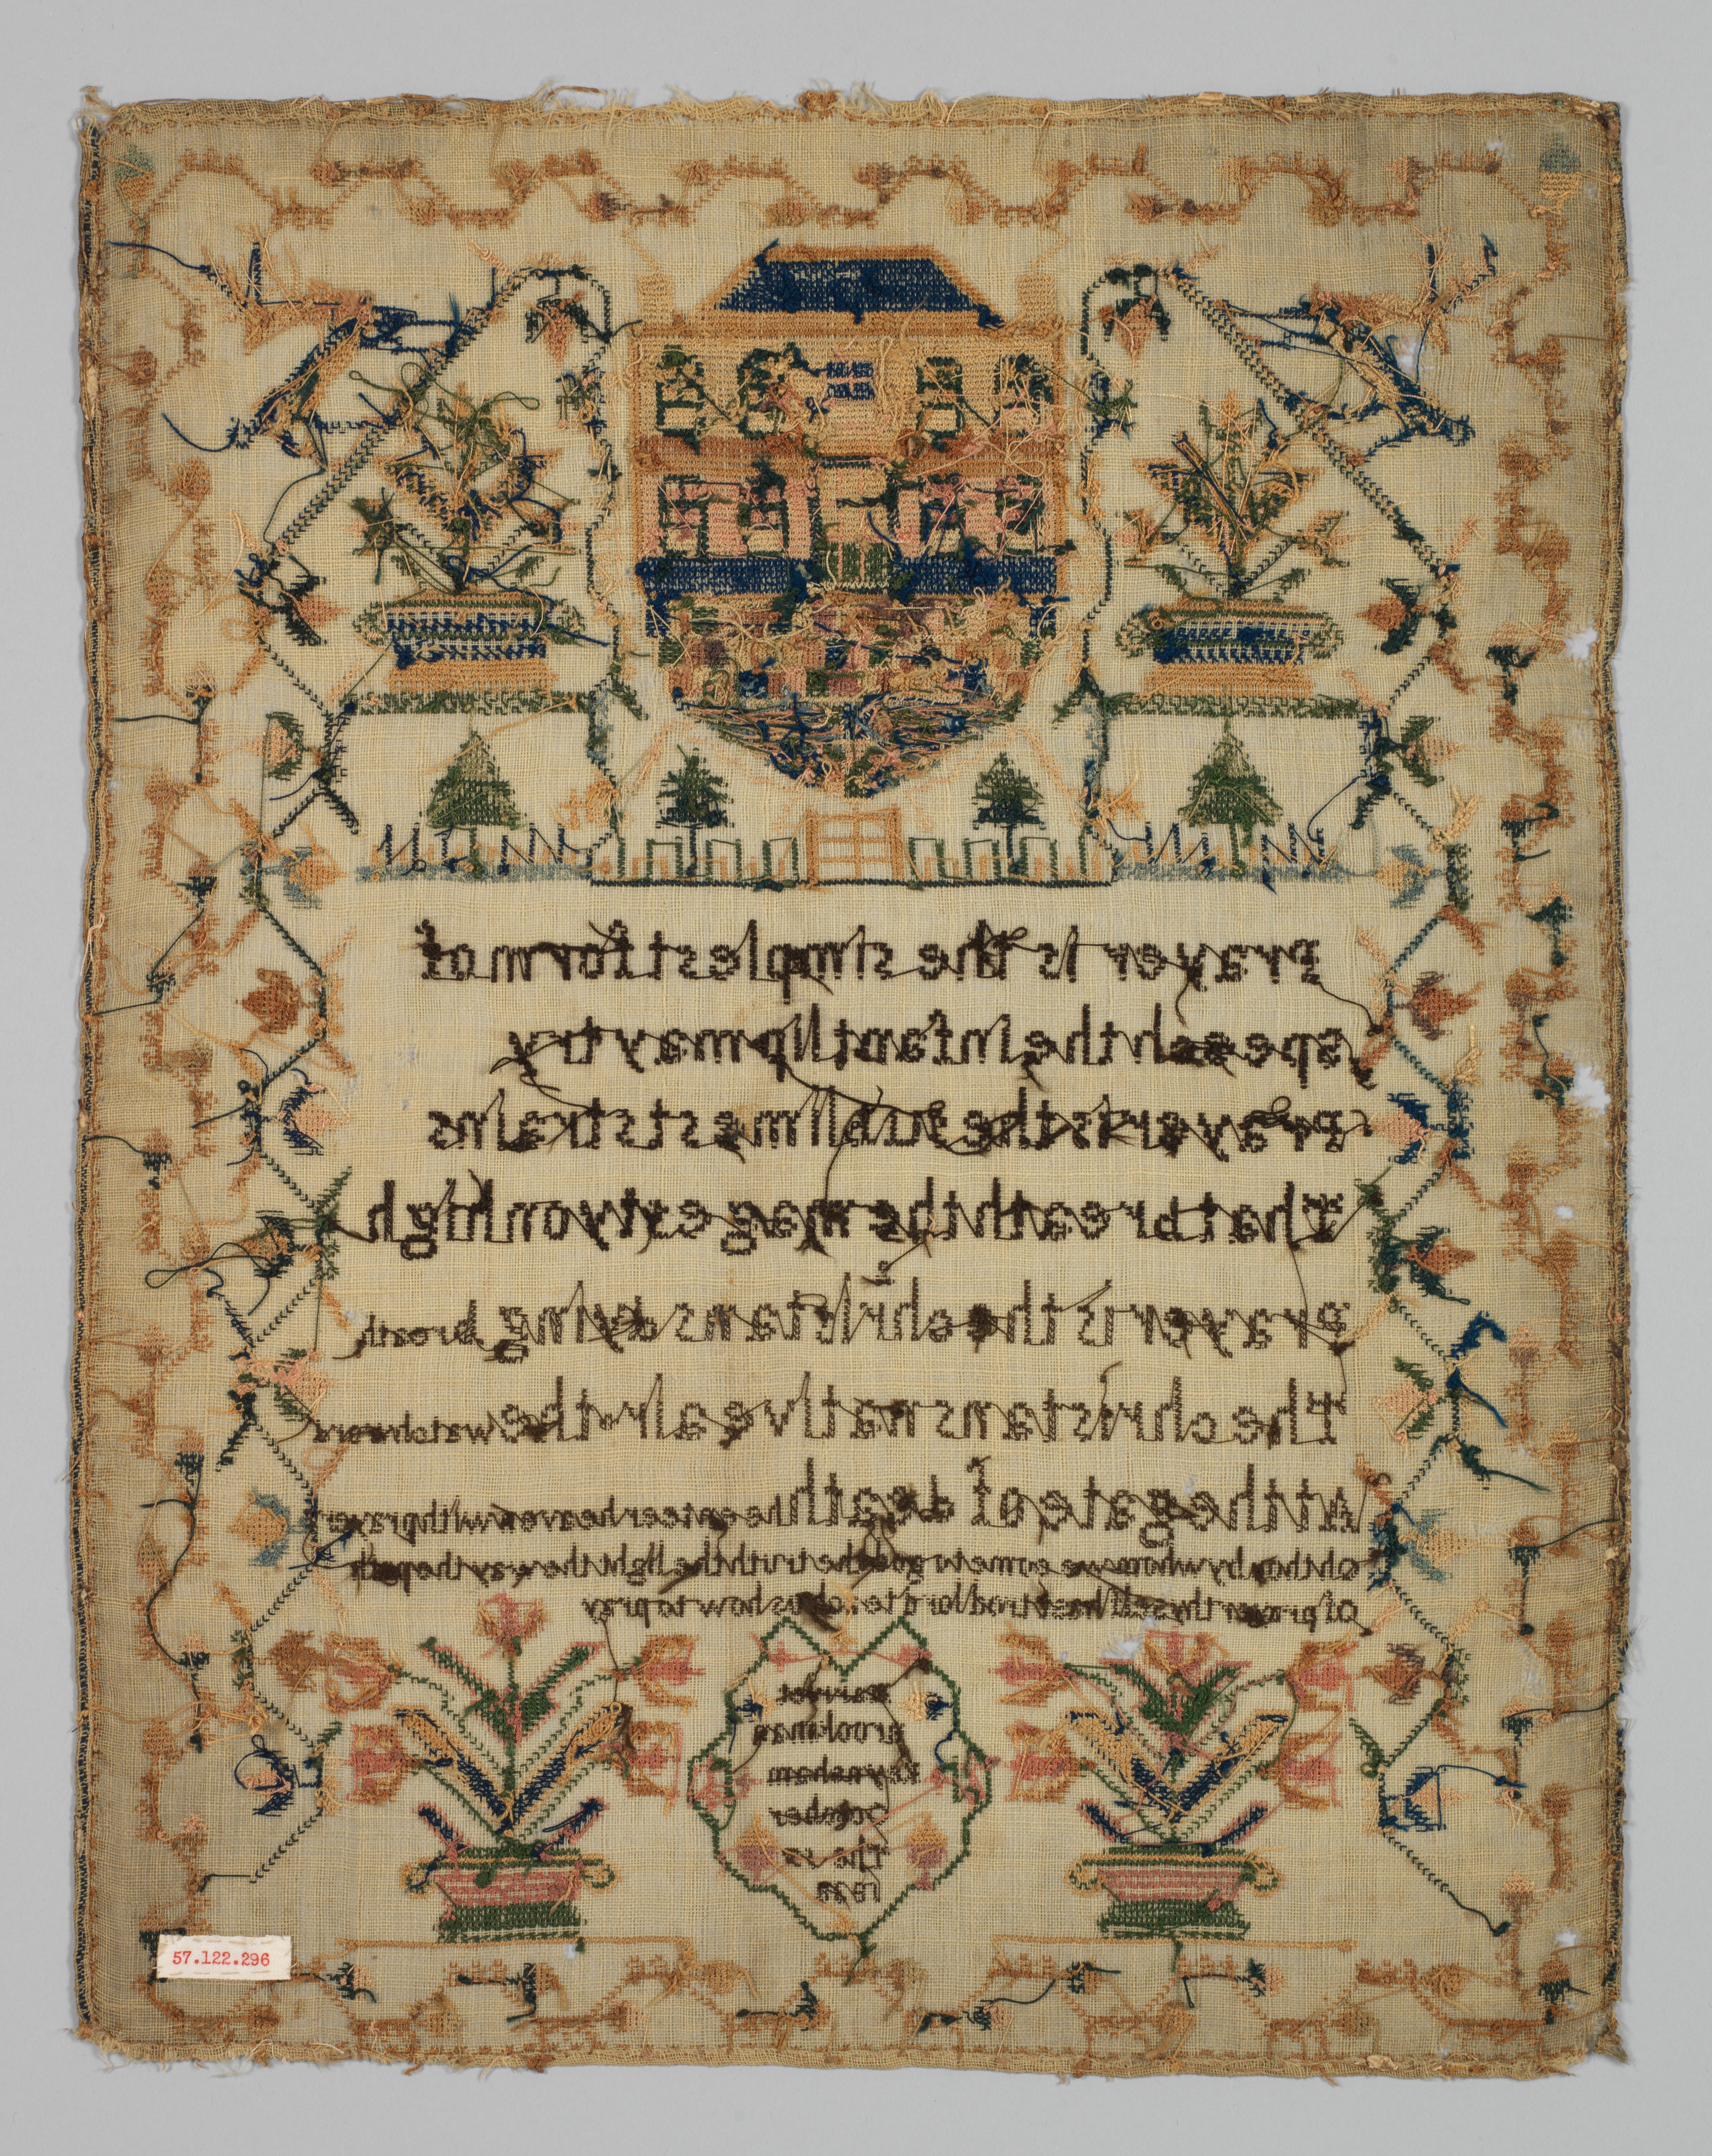 Prayer is the simplest form of
speech the infant lip may try
prayer is the sublimest strains
That reath the magesty on high
Prayer is the christans dying breath
The christans nativ eair the watchwor
At the gate of death the enteer heaven with prayer
oh thou by whom we come to god the truth the light the way the path
of prayer thyself hast trod lord teach us how to pray
Keynsham
October
the
57.122.296